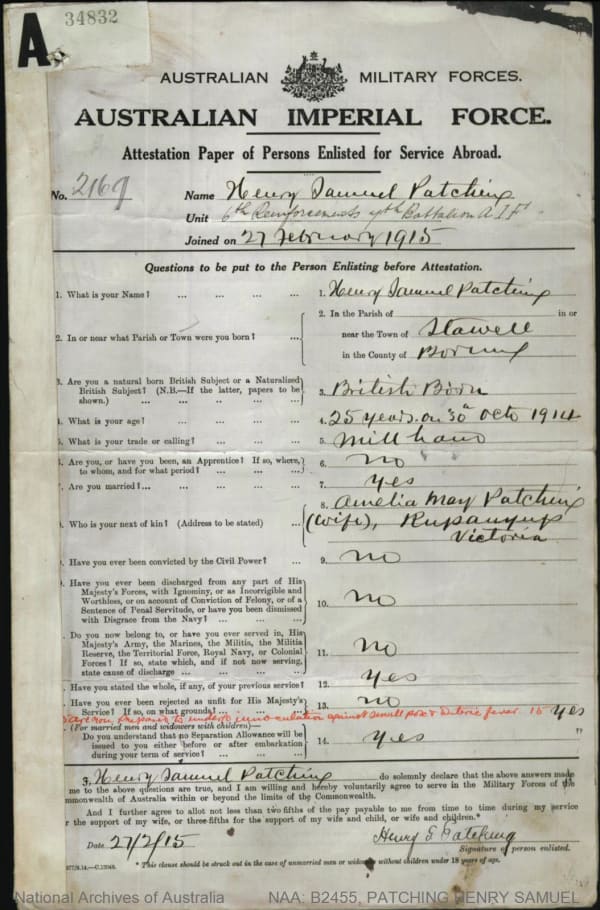 A. 34832
AUSTRALIAN MILITARY FORCES.
AUSTRALIAN IMPERIAL FORCE.
Attestation Paper of Persons Enlisted for Service Abroad.
No. 2169 Name Henry Samuel Patching
Unit 6th Reinforcements 4th Battalion A I F
Joined on 27 February 1915
Questions to be put to the Person Enlisting before Attestation.
1. What is your Name? ... ... ... ... 1. Henry Samuel Patching
2. In the Parish of in or
2. In or near what Parish or Town were you born? ... near the Town of Stawell
in the County of Borung
3. Are you a natural born British Subject or a Naturalized
British Subject? (N.B.—If the latter, papers to be 3. British Born
shown.) ... ... ... ... ...
4. What is your age? ... ... ... ... 4. 25 years on 30th Octo 1914
5. What is your trade or calling? ... ... ... 5. Mill hand
Are you, or have you been, an Apprentice? If so, where, 6. No
to whom, and for what period? ... ... ...
Are you married?... ... ... ... ... 7. Yes
8. Amelia May Patching
Who is your next of kin? (Address to be stated) ... (Wife), Rupanyup
Victoria
Have you ever been convicted by the Civil Power? ... 9. No
Have you ever been discharged from any part of His
Majesty's Forces, with Ignominy, or as Incorrigible and
Worthless, or on account of Conviction of Felony, or of a 10. No
Sentence of Penal Servitude, or have you been dismissed
with Disgrace from the Navy? ... ... ...
Do you now belong to, or have you ever served in, His
Majesty's Army, the Marines, the Militia, the Militia
Reserve, the Territorial Force, Royal Navy, or Colonial 11. No
Forces? If so, state which, and if not now serving,
state cause of discharge ... ... ... ...
Have you stated the whole, if any, of your previous service? 12. Yes
Have you ever been rejected as unfit for His Majesty's 13. No
Service? If so, on what grounds? ... ... ...
prepared to undergo inoculation against small pox & enteric fever. 15 Yes
(For married men and widowers with children)—
Do you understand that no Separation Allowance will be
issued to you either before or after embarkation 14. Yes "
during your term of service? ... ... ...
3, Henry Samuel Patching do solemnly declare that the above answers made
me to the above questions are true, and I am willing and hereby voluntarily agree to serve in the Military Forces of the
mmonwealth of Australia within or beyond the limits of the Commonwealth.
And I further agree to allot not less than two fifths of the pay payable to me from time to time during my service
r the support of my wife, or three-fifths for the support of my wife and child, or wife and children.*
Date 27/2/15 Henry S Patching
Signature of person enlisted.
* This clause should be struck out in the case of unmarried men or widowers without children under 18 years of age.
National Archives of Australia NAA: B2455, PATCHING HENRY SAMUEL